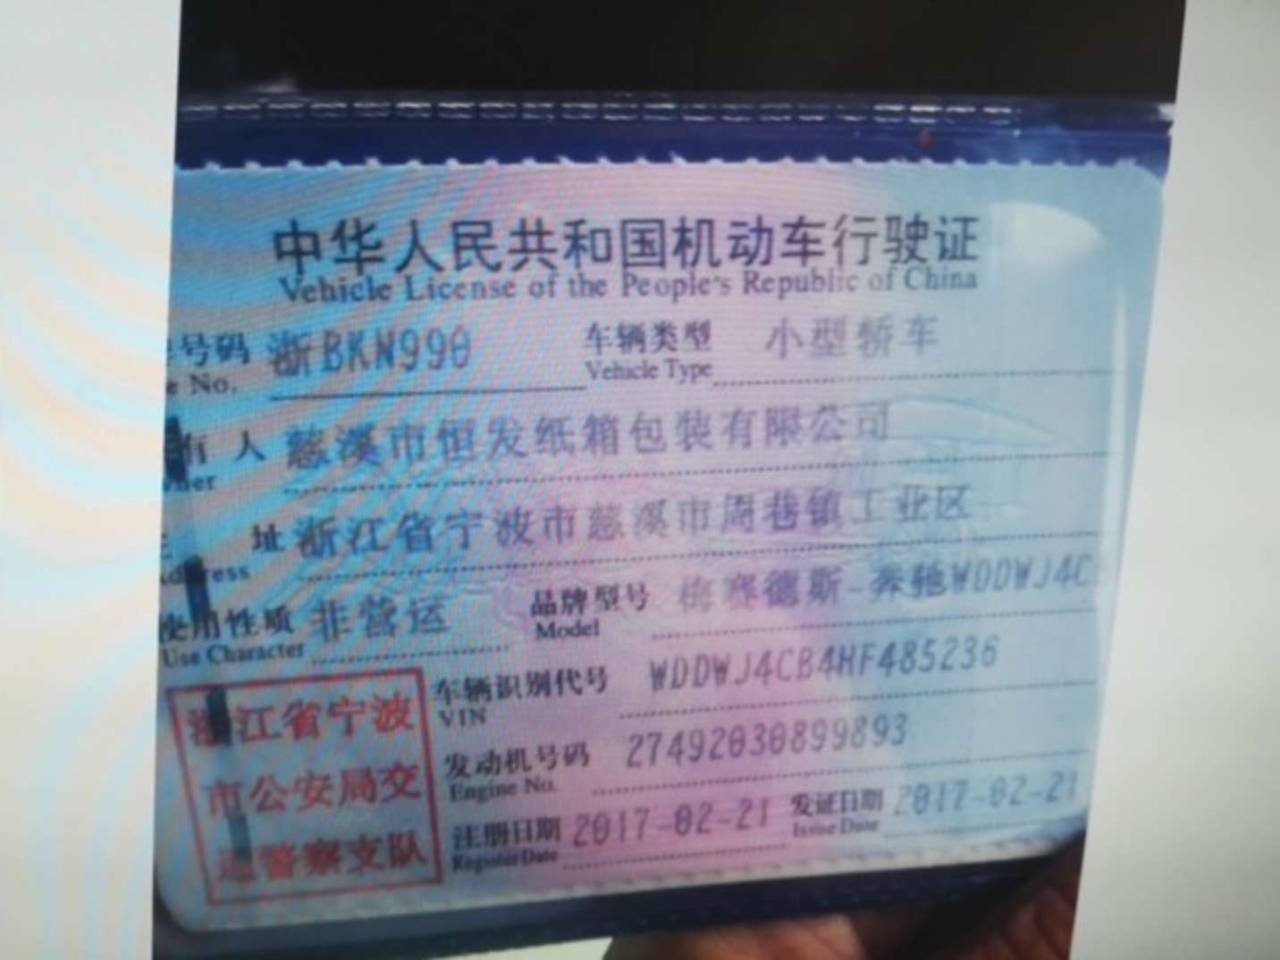 中华人民共和国机动车行驶证
Vehicle License of the People's Republic of China
号码 浙BKN990 车辆类型 小型轿车
No. Vehicle Type
有人 慈溪市恒发纸箱包装有限公司
址 浙江省宁波市慈溪市周巷镇工业区
使用性质 非营运 品牌型号 梅赛德斯-奔驰WDDWJ4C
Use Character Model
车辆识别代号 WDDWJ4CB4HF485236
VIN
发动机号码 27492030899893
Engine No.
注册日期 2017-02-21 发证日期 2017-02-21
Register Date Issue Date
浙江省宁波
市公安局交
通警察支队